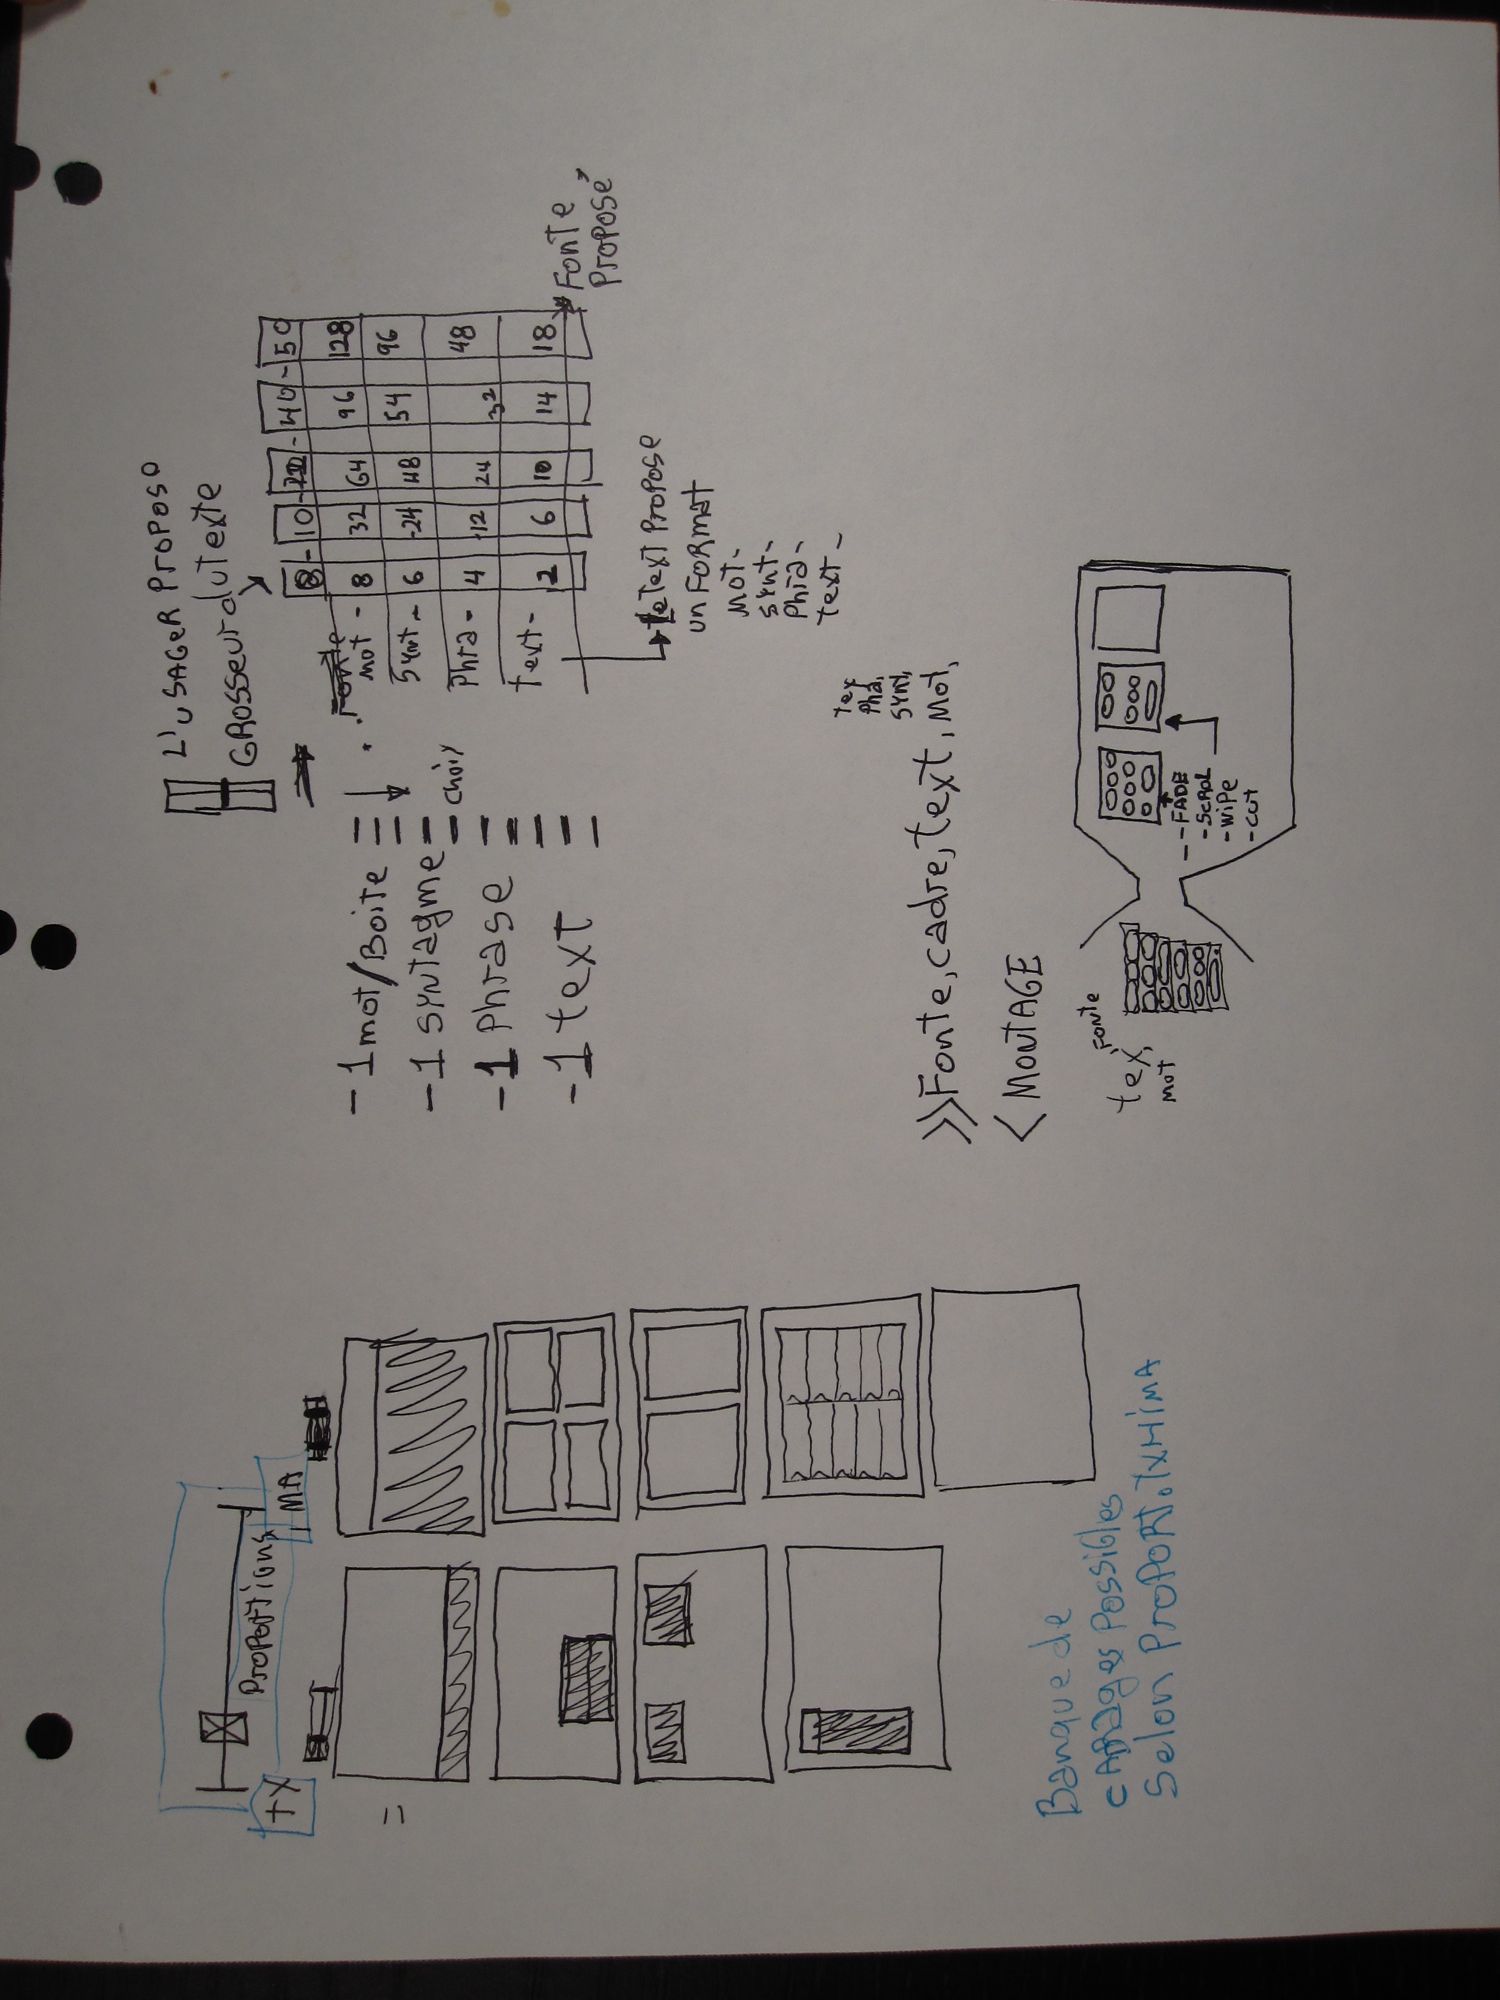 TX
Proportions
MA
=
Banque de
CADRAGES Possibles
Selon PROPORT.TXHIMA
L'USAGER PROPOSO
GROSSEUR du Texte
- 1 mot/Boite =
- 1 syntagme
- choix
- 1 Phrase
- 1 text
8 - 10 - 20 - 40 - 50
Fonte
mot - 8 32 64 96 128
Synt - 6 -24 48 54 96
Phra - 4 -12 24 32 48
text - 2 6 10 14 18
Fonte
PROPOSÉ
le Text PROPOSE
un FORMAT
MOT -
Synt -
Phra -
text -
>> Fonte, cadre, text, Mot,
Synt,
Pha,
Tex
< MONTAGE
tex, Fonte
mot
- FADE
- SCROL
- WIPE
- CUT